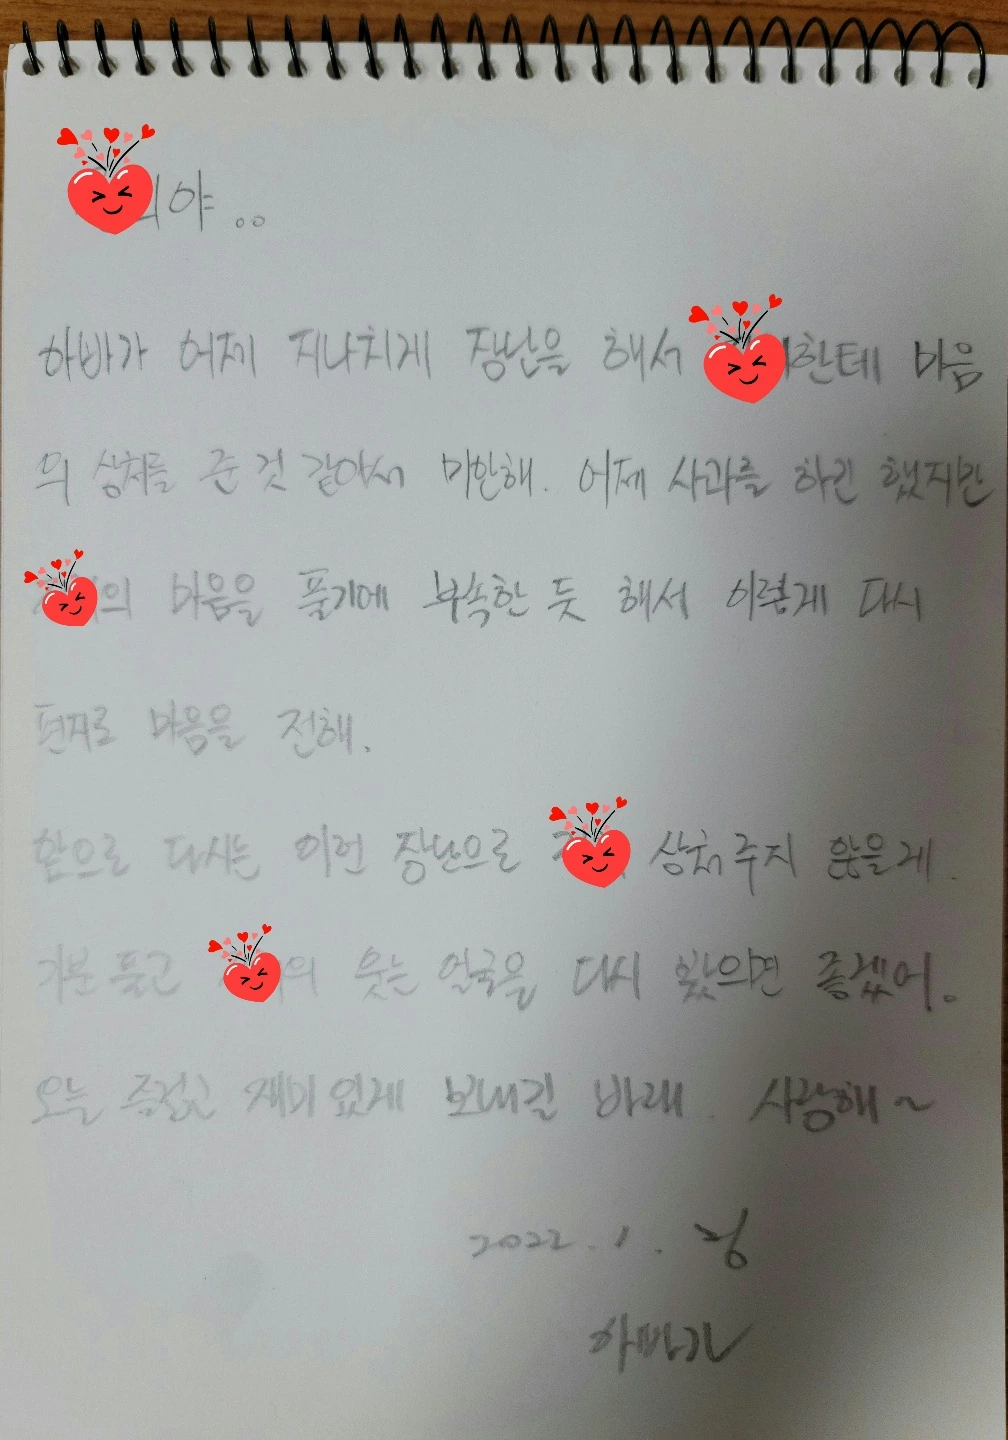 야..
하빠가 어제 지나치게 장난을 해서 한테 마음
의 상처를 준 것 같아서 미안해. 어제 사과를 하긴 했지만
의 마음을 풀기에 부족한 듯 해서 이렇게 다시
편지로 마음을 전해.
앞으로 다시는 이런 장난으로 상처 주지 않을게.
기분 풀고 의 웃는 얼굴을 다시 봤으면 좋겠어.
오늘 즐겁고 재미있게 보내길 바래. 사랑해~
2022. 1.
하빠가